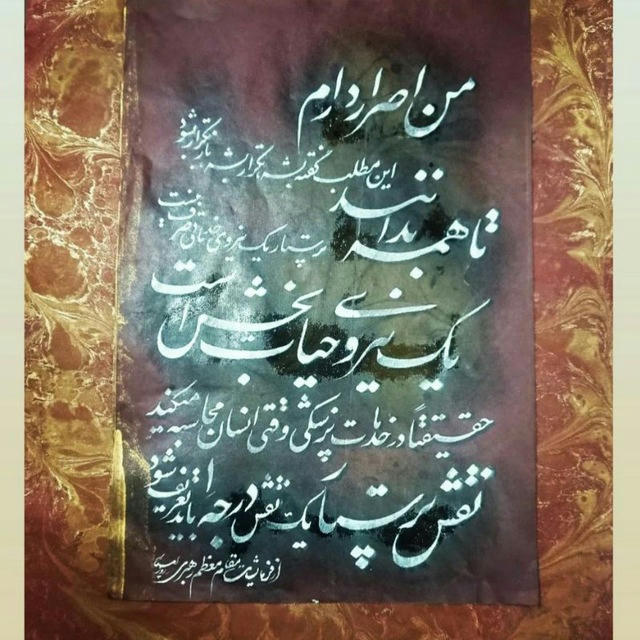 من اصرار دارم
این مطلب که گفته شد تکرار شده باز هم تکرار شود
تا همه بدانند
پرستار یک نیروی خدماتی صرف نیست
یک نیروی حیات بخش است
حقیقتاً در خدمات پزشکی وقتی انسان محاسبه میکند
نقش پرستار یک نقش درجه ۱ باید تعریف شود
از فرمایشات مقام معظم رهبری